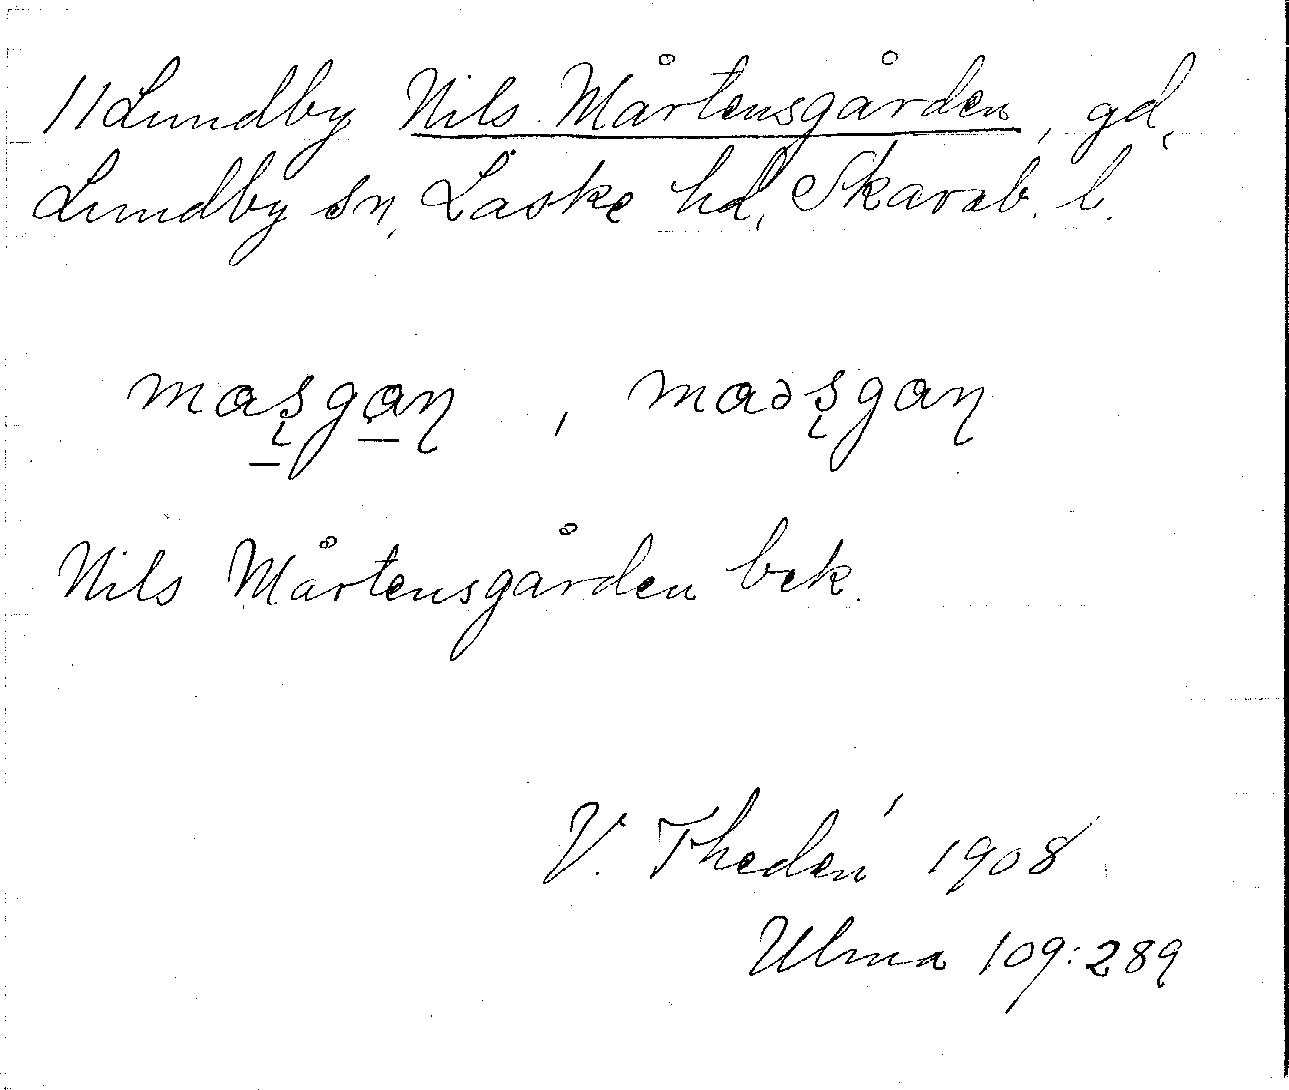 11 Lundby Nils Mårtensgården, gd,
Lundby sn, Laske hd, Skarab. l.
maʂgaɳ , maəʂgaɳ
Nils Mårtensgården bek.
V. Thedén 1908
Ulma 109:289